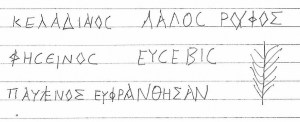 ΚΕΛΑΔΙΑΝΟC ΛΑΛΟC ΡΟΥΦΟC
ΦΗCΕΙΝΟC ΕΥCΕΒΙC
ΠΑΥΛΕΝΟC ΕΥΦΡΑΝΘΗΣΑΝ